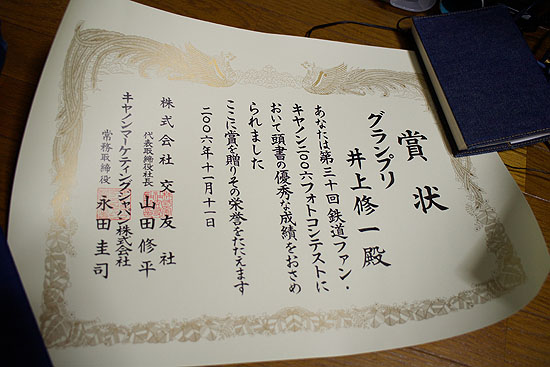 賞状
グランプリ
井上修一殿
あなたは第三十回鉄道ファン・
キヤノン二〇〇六フォトコンテストに
おいて頭書の優秀な成績をおさめ
られました
ここに賞を贈りその栄誉をたたえます
二〇〇六年十一月十一日
株式会社交友社
代表取締役社長 山田修平
キヤノンマーケティングジャパン株式会社
常務取締役 永田圭司